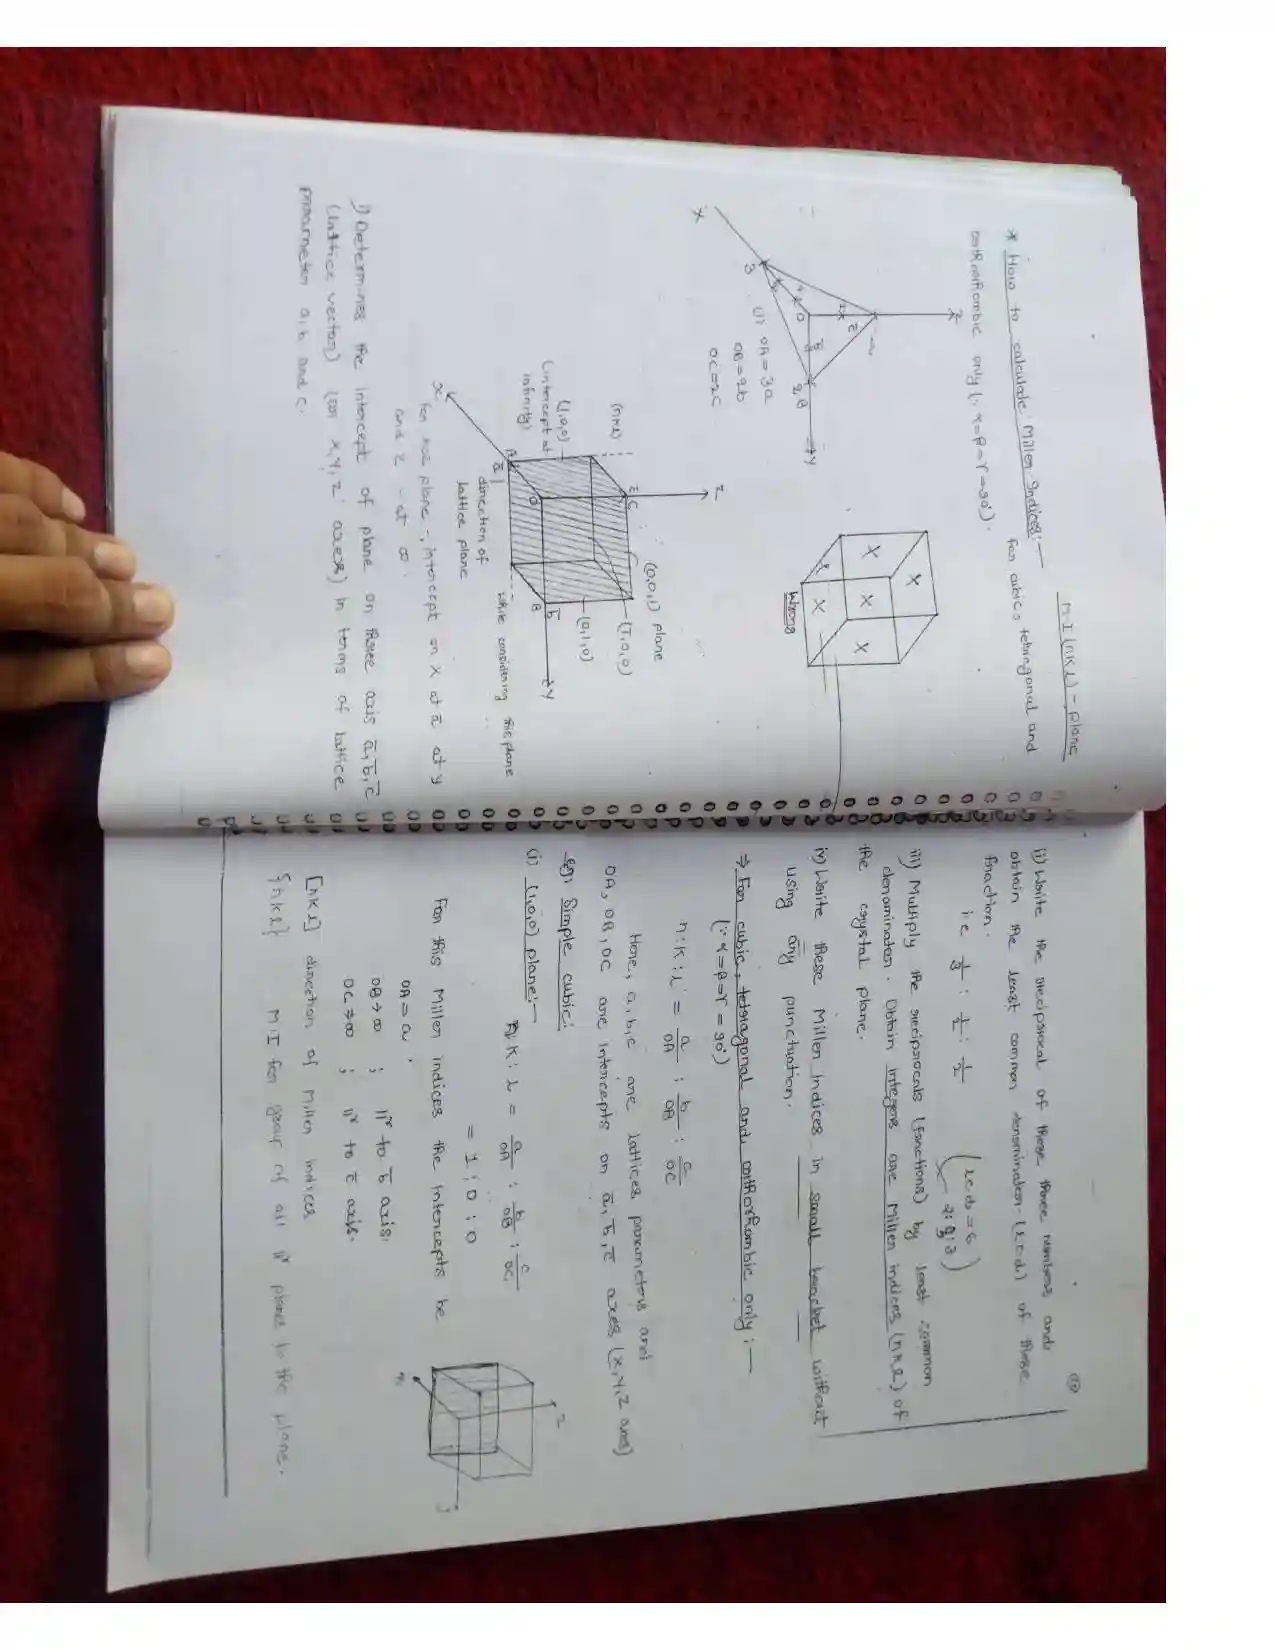 M.I (hkl) - plane
* How to calculate Miller Indices:— For cubic, tetragonal and
orthorhombic only (∵ α=β=γ=90°).
Z
C̄
O
b̄
2,B
Y
3
X
(i) OA = 3a
OB = 2b
OC = 2c
X
X
X
X
X
Wrong
Z
C̄
(0,0,1) plane
(hkl)
(1,0,0)
(intercept at
infinity)
(1̄,0,0)
(0,1,0)
O
A
ā
B
b̄
Y
X
direction of
lattice plane
while considering this plane
for xoz plane -, intercept on X at ā at y
and z - at ∞.
i) Determines the intercept of plane on three axis ā, b̄, c̄
(lattice vector) (on x, y, z axes) in terms of lattice
parameter a, b and c.
(ii) Write the reciprocal of these three numbers and
obtain the least common denominator (l.c.d.) of these
fraction.
i.e 1/3 : 1/2 : 1/2
(l.c.d. = 6
2:3:3)
iii) Multiply the reciprocals (fractions) by least common
denominator. Obtain integers are Miller indices (hkl) of
the crystal plane.
iv) Write these Miller Indices in small bracket without
using any punctuation.
⇒ For cubic, tetragonal and orthorhombic only :—
(∵ α=β=γ=90°)
h:k:l = a/OA : b/OB : c/OC
Here, a, b, c are lattices parameters and
OA, OB, OC are intercepts on ā, b̄, c̄ axes (x, y, z axes)
eg: Simple cubic:
(i) (1,0,0) plane:—
h:k:l = a/OA : b/OB : c/OC
= 1 : 0 : 0
For this Miller indices the intercepts be
OA = a ;
OB → ∞ ; ||r to b̄ axis.
OC → ∞ ; ||r to c̄ axis.
[hkl] direction of Miller indices
{hkl} M.I for of all ||r planes to the plane.
Z